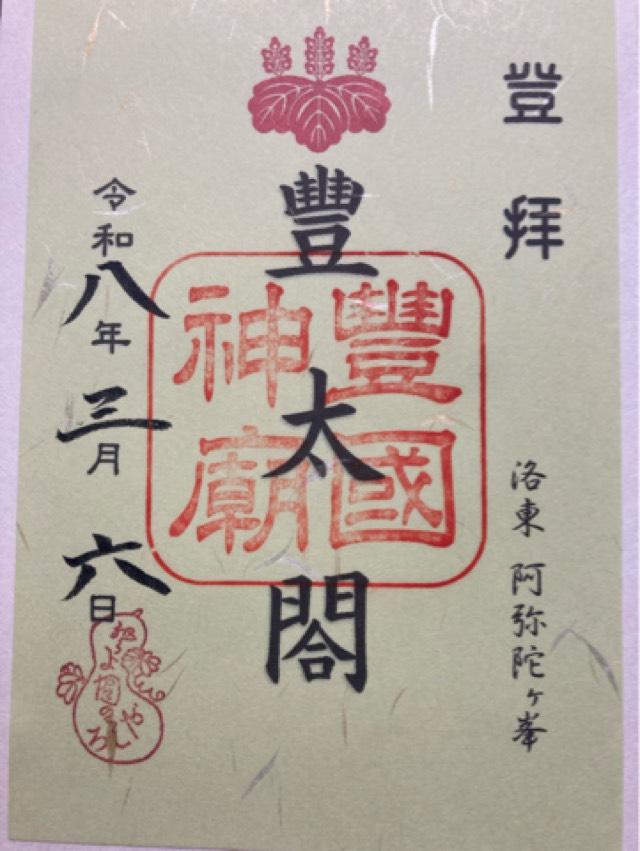 登拝
洛東 阿弥陀ヶ峯
豐太閤
豐國
神廟
令和八年三月六日